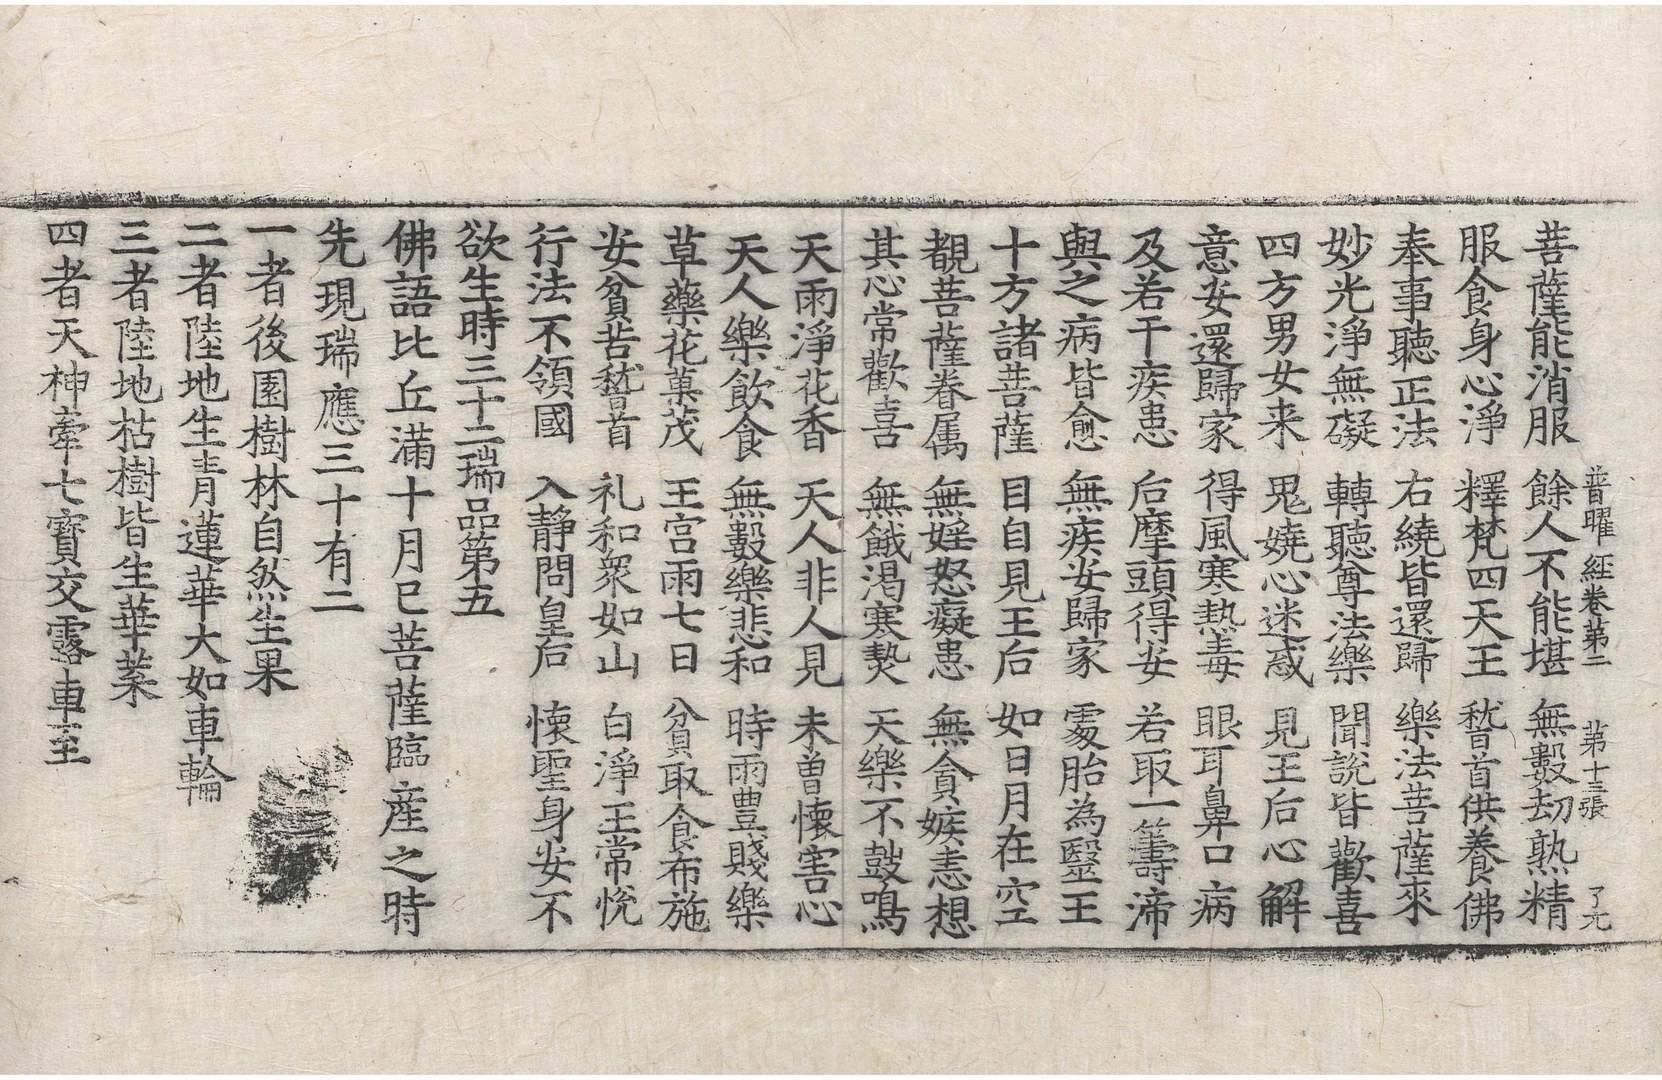 普曜経卷第二 第十三張 了元
菩薩能消服 餘人不能堪 無數劫熟精
服食身心淨 釋梵四天王 稽首供養佛
奉事聽正法 右繞皆還歸 樂法菩薩來
妙光淨無礙 轉聽尊法樂 聞說皆歡喜
四方男女来 鬼嬈心迷惑 見王后心解
意安還歸家 得風寒熱毒 眼耳鼻口病
及若干疾患 后摩頭得安 若取一籌渧
與之病皆愈 無疾安歸家 處胎為毉王
十方諸菩薩 目自見王后 如日月在空
覩菩薩眷属 無婬怒癡患 無貪嫉恚想
其心常歡喜 無餓渴寒𤍠 天樂不鼓鳴
天雨淨花香 天人非人見 未曽懷害心
天人樂飲食 無數樂悲和 時雨豊賤樂
草藥花菓茂 王宮雨七日 貧取食布施
安貧苦稽首 礼和衆如山 白淨王常悅
行法不領國 入靜問皇后 懷聖身安不
欲生時三十二瑞品第五
佛語比丘滿十月已菩薩臨産之時
先現瑞應三十有二
一者後園樹林自然生果
二者陸地生青蓮華大如車輪
三者陸地枯樹皆生華葉
四者天神牽七寶交露車至